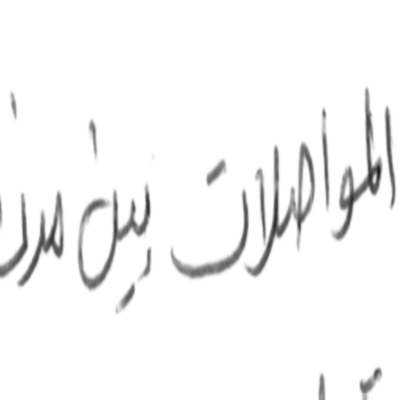 المواصلات بين مدن